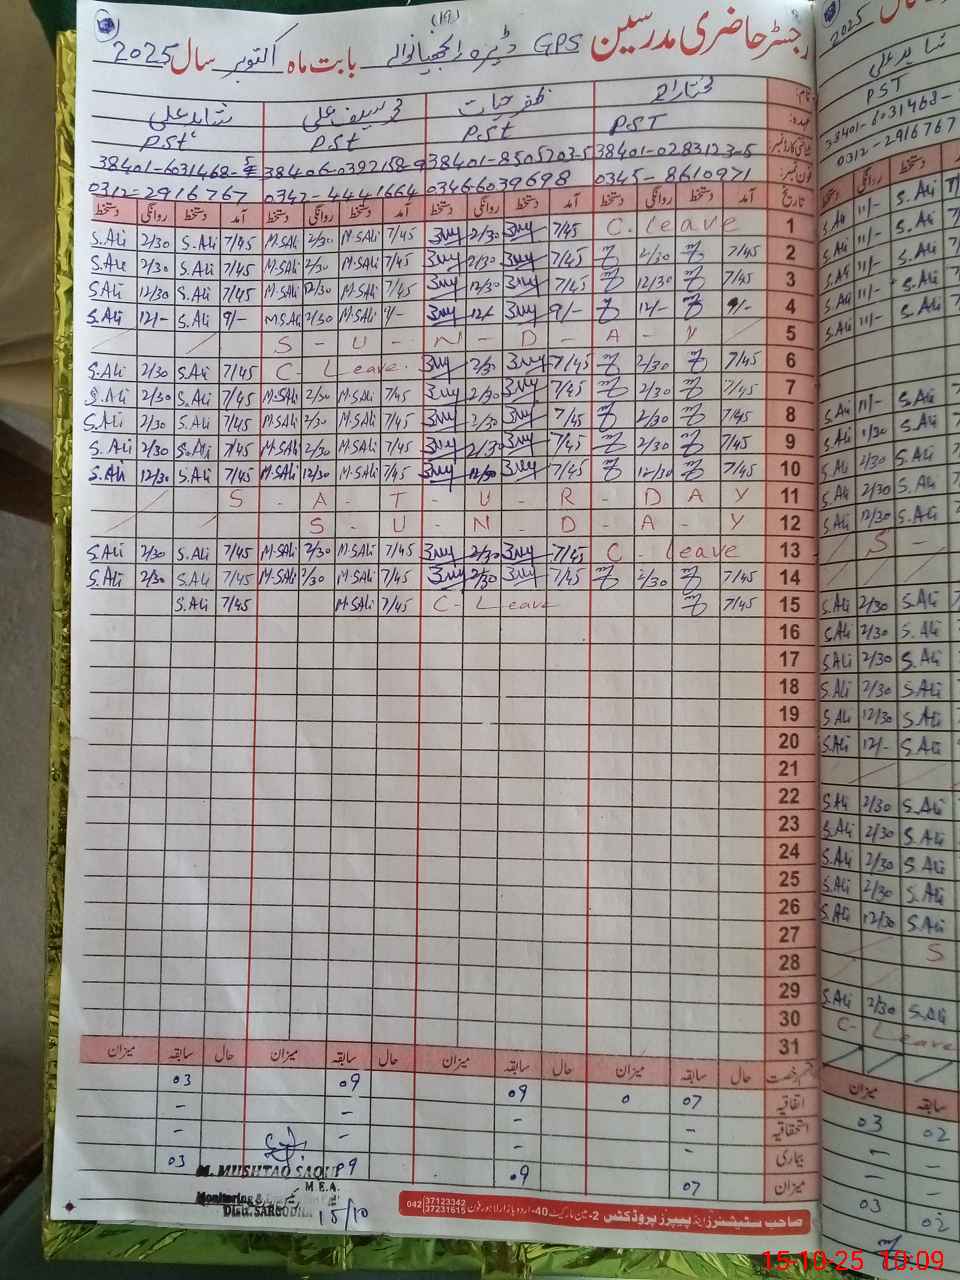 (19)
رجسٹر حاضری مدرسین GPS ڈیرہ رانجھیانوالے بابت ماہ اکتوبر سال 2025
نام: مختار احمد ظفر حیات محمد سیف علی شاہد علی
عہدہ: PST PSt PSt PSt
شناختی کارڈ نمبر: 38401-0283123-5 38401-8505203-5 38406-0392158-9 38401-6031468-5
فون نمبر: 0345-8610971 0346-6039698 0342-4441664 0312-2916767
تاریخ آمد دستخط روانگی دستخط آمد دستخط روانگی دستخط آمد دستخط روانگی دستخط آمد دستخط روانگی دستخط
S.Ali 2/30 S.Ali 7/45 M.SAli 2/30 M.SAli 7/45 2/30 7/45 C. Leave 1
S.Ali 2/30 S.Ali 7/45 M.SAli 2/30 M.SAli 7/45 2/30 7/45 2/30 7/45 2
S.Ali 12/30 S.Ali 7/45 M.SAli 12/30 M.SAli 7/45 12/30 7/45 12/30 7/45 3
S.Ali 12/- S.Ali 9/- M.SAli 2/30 M.SAli 9/- 12/- 9/- 12/- 9/- 4
S - U - N - D - A - Y 5
S.Ali 2/30 S.Ali 7/45 C- Leave. 2/30 7/45 2/30 7/45 6
S.Ali 2/30 S.Ali 7/45 M.SAli 2/30 M.SAli 7/45 2/30 7/45 2/30 7/45 7
S.Ali 2/30 S.Ali 7/45 M.SAli 2/30 M.SAli 7/45 2/30 7/45 2/30 7/45 8
S.Ali 2/30 S.Ali 7/45 M.SAli 2/30 M.SAli 7/45 2/30 7/45 2/30 7/45 9
S.Ali 12/30 S.Ali 7/45 M.SAli 12/30 M.SAli 7/45 12/30 7/45 12/30 7/45 10
S - A - T - U - R - D A Y 11
S - U - N - D - A - Y 12
S.Ali 2/30 S.Ali 7/45 M.SAli 2/30 M.SAli 7/45 2/30 7/45 C - Leave 13
S.Ali 2/30 S.Ali 7/45 M.SAli 2/30 M.SAli 7/45 2/30 7/45 2/30 7/45 14
S.Ali 7/45 M.SAli 7/45 C- Leave 7/45 15
16
17
18
19
20
21
22
23
24
25
26
27
28
29
30
31
قسم رخصت حال سابقہ میزان حال سابقہ میزان حال سابقہ میزان حال سابقہ میزان
اتفاقیہ 07 0 09 09 03
استحقاقیہ - - - -
بیماری - - - -
میزان 07 09 09 03
M. MUSHTAQ SAQIB
M.E.A.
Monitoring &
Distt. SARGODHA
15/10
صاحب سٹیشنرز اینڈ پیپرز پروڈکٹس 2-مین مارکیٹ 40-اردو بازار لاہور فون 042 37123342 37231615
2025
شاہد علی
PST
38401-6031468-
0312-2916767
دستخط روانگی دستخط
S.Ali 11/- S.Ali
S.Ali 11/- S.Ali
S.Ali 11/- S.Ali
S.Ali 11/- S.Ali
S.Ali 11/- S.Ali
S.Ali 1/30 S.Ali
S.Ali 2/30 S.Ali
S.Ali 2/30 S.Ali
S.Ali 12/30 S.Ali
S -
S.Ali 2/30 S.Ali
S.Ali 2/30 S.Ali
S.Ali 2/30 S.Ali
S.Ali 2/30 S.Ali
S.Ali 12/30 S.Ali
S.Ali 12/- S.Ali
S.Ali 2/30 S.Ali
S.Ali 2/30 S.Ali
S.Ali 2/30 S.Ali
S.Ali 2/30 S.Ali
S.Ali 12/30 S.Ali
S
S.Ali 2/30 S.Ali
C- Leave
میزان سابقہ
03 02
- -
- -
03 02
15-10-25 10:09